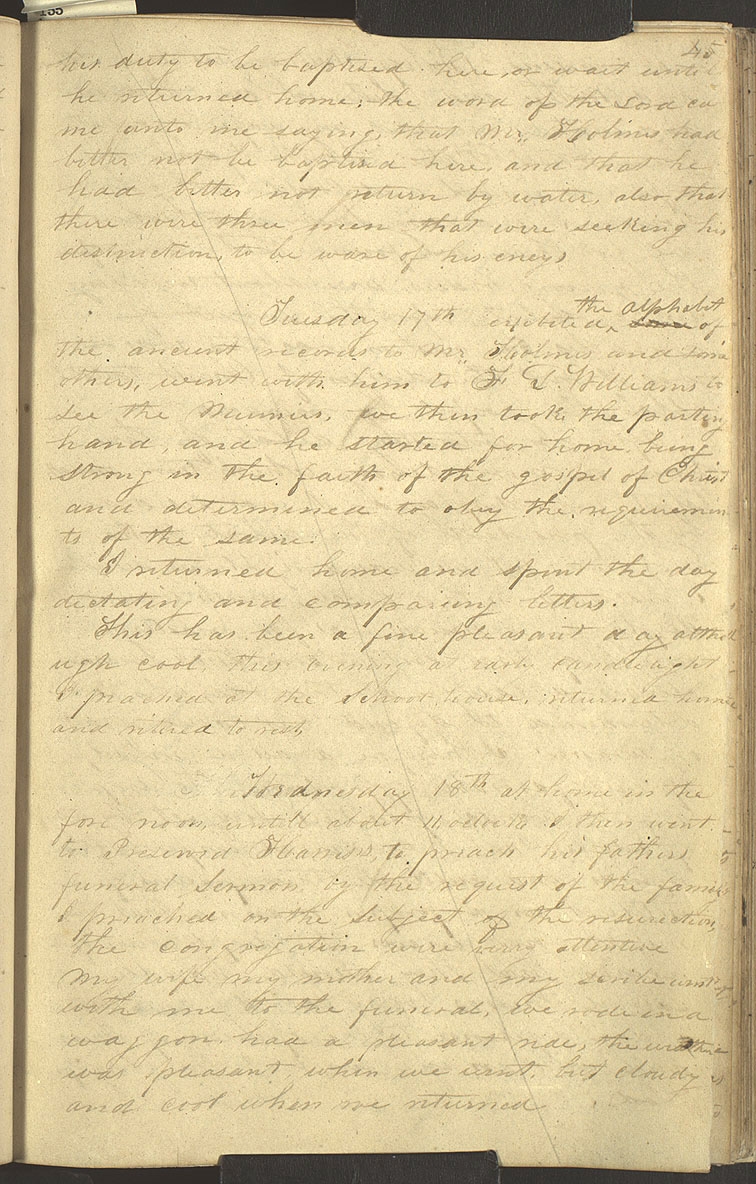 155
45
his duty to be baptised here, or wait until
he returned home; the word of the Lord ca
me unto me saying, that Mr. Holmes had
better not be baptised here, and that he
had better not return by water, also that
there were three men that were seeking his
destruction, to beware of his eneys
Tuesday 17th exibited the alphabet of
the ancient records to Mr. Holmes and some
others, went with him to F G. Williams to
see the Mumies, we then took the parting
hand, and he started for home, being
strong in the faith of the gospel of Christ
and determined to obey the requiremen
ts of the same.
I returned home and spent the day
dictating and comparing letters.
This has been a fine pleasant day altho
ugh cool, this evening at early candlelight
I preached at the School house, returned home
and retired to rest,
Wednesday 18th at home in the
fore noon, untill about 11 oclock I then went
to Preserved Harris's, to preach his fathers
funeral Sermon, by the request of the family
I preached on the subject of the resurrection,
the congregation were very attentive
My wife my mother and my scribe went
with me to the funeral, we rode in a
waggon, had a pleasant ride, the weather
was pleasant, when we went, but cloudy
and cool when we returned